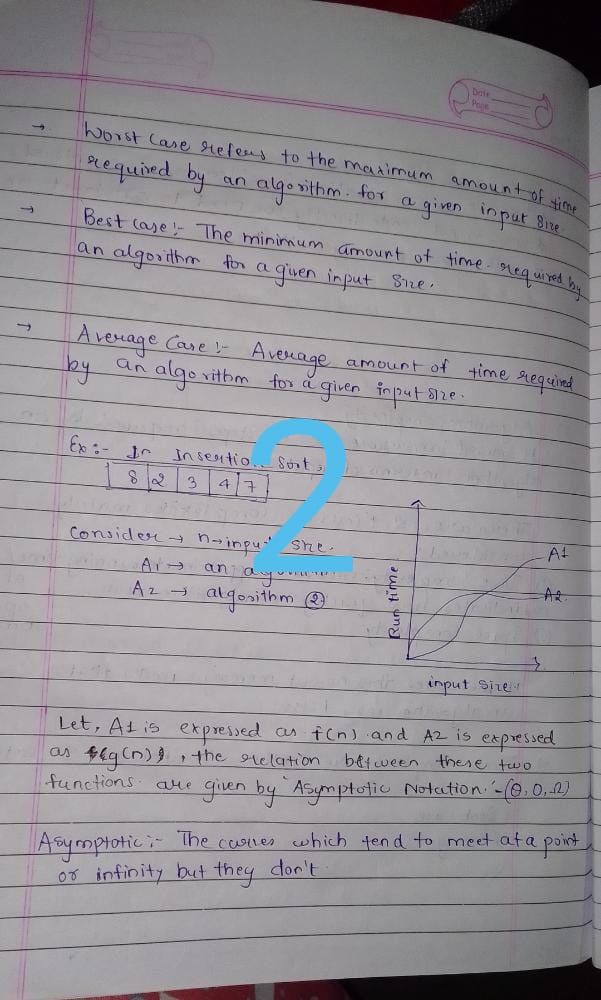 Date
Page
→ Worst Case refers to the maximum amount of time
required by an algorithm. for a given input size.
→ Best case :- The minimum amount of time required by
an algorithm for a given input size.
→ Average Case :- Average amount of time required
by an algorithm for a given input size.
Ex :- In Insertion Sort,
8 2 3 4 7
2
Consider → n → input size.
A1 → an
A2 → algorithm ②
Run time
A1
A2
input size
Let, A1 is expressed as f(n) and A2 is expressed
as g(n), the relation between these two
functions are given by "Asymptotic Notation" - (θ, O, Ω)
Asymptotic :- The curves which tend to meet at a point
or infinity but they don't